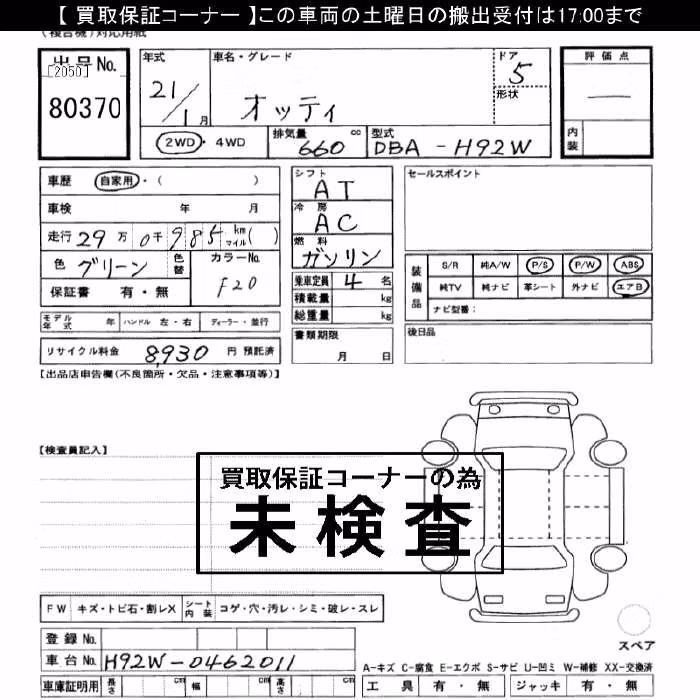 【 買取保証コーナー 】この車両の土曜日の搬出受付は17:00まで
(複合機)対応用紙
出品No.
[2050]
80370
年式
21/1月
車名・グレード
オッティ
ドア
5
形状
評価点
―
内装
2WD・4WD
排気量
660 cc
型式
DBA-H92W
車歴 自家用・( )
車検 年 月
走行 29万0千985 km マイル( )
色 グリーン 色替
カラーNo. F20
保証書 有・無
シフト AT
冷房 AC
燃料 ガソリン
乗車定員 4名
積載量 kg
総重量 kg
書類期限
月 日
セールスポイント
装備品
S/R 純A/W P/S P/W ABS
純TV 純ナビ 革シート 外ナビ エアB
ナビ型番:
後日品
モデル年式 年 ハンドル 左・右 ディーラー・並行
リサイクル料金 8,930 円 預託済
【出品店申告欄(不良箇所・欠品・注意事項等)】
【検査員記入】
買取保証コーナーの為
未検査
FW キズ・トビ石・割レX シート内装 コゲ・穴・汚レ・シミ・破レ・スレ
登録No.
車台No. H92W-0462011
車庫証明用 長さ cm 幅 cm 高さ cm
スペア
A-キズ C-腐食 E-エクボ S-サビ U-凹ミ W-補修 XX-交換済
工具 有・無 ジャッキ 有・無